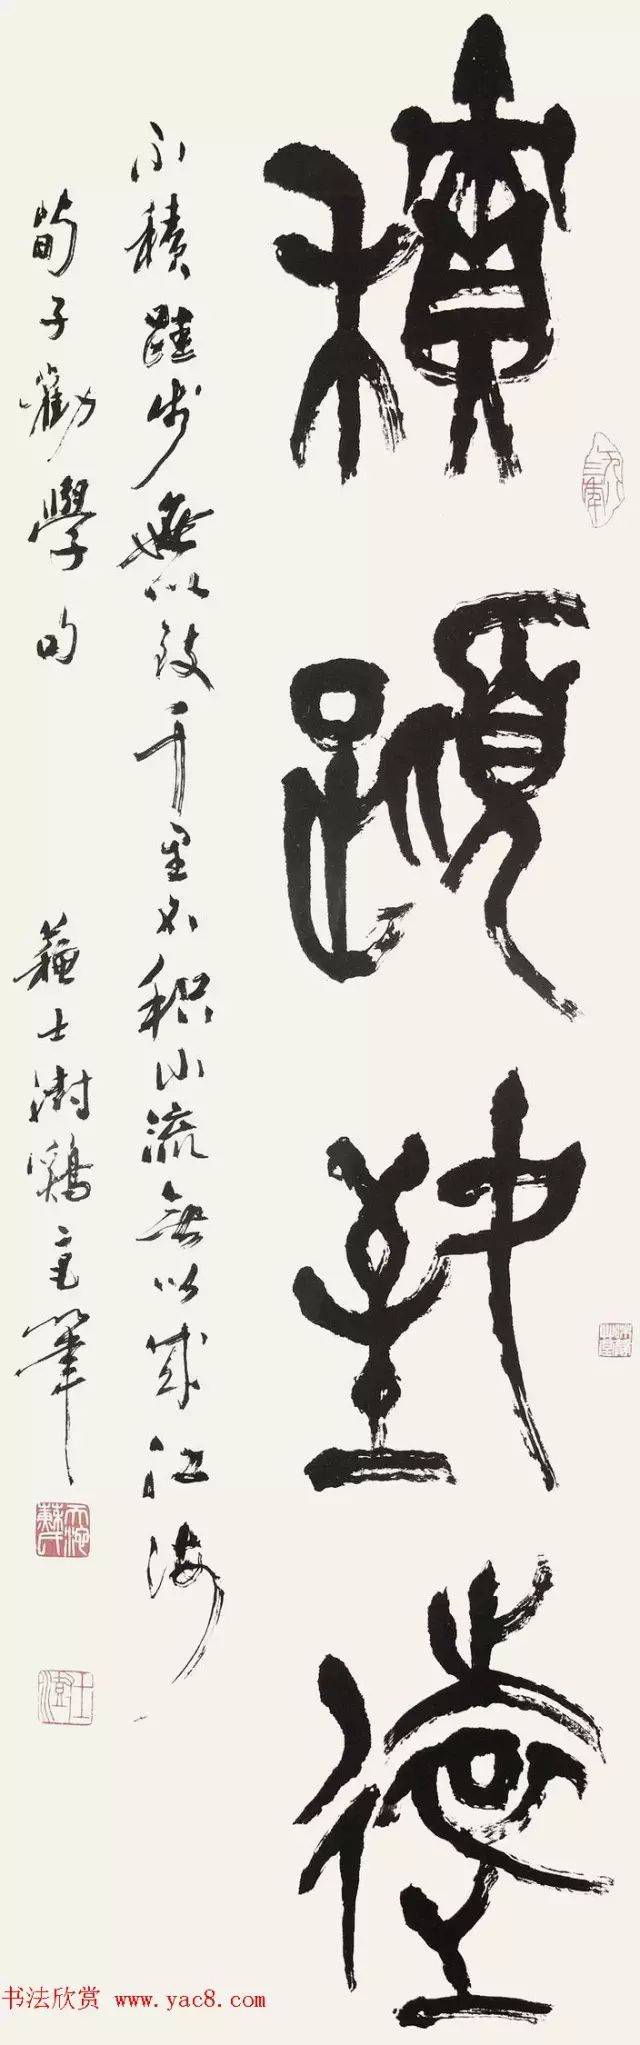 積蹞致遠
不積跬步無以致千里不积小流無以成江海
荀子勸學句 蘇士澍鷄毫筆
士澍
书法欣赏 www.yac8.com